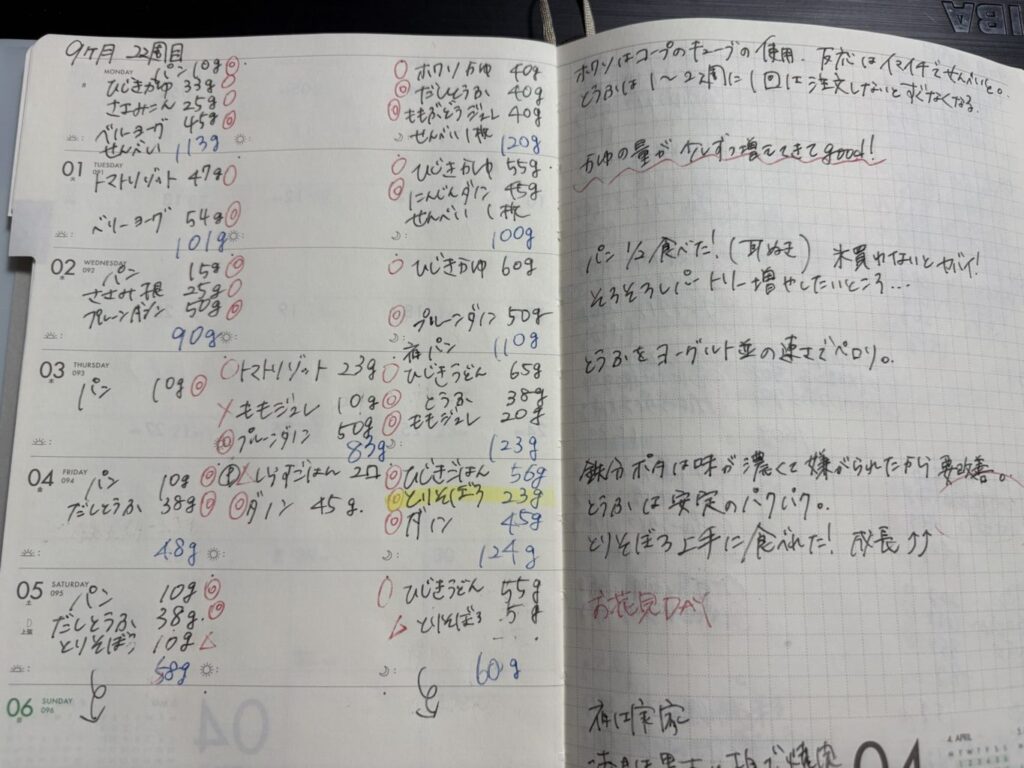 9ヶ月 22週目
MONDAY
パン 10g◎
ひじきがゆ 33g○
ささみこん 25g○
ベリーヨーグ 45g◎
せんべい 113g
○ホワソがゆ 40g
◎だしとうふ 40g
◎ももぶどうジュレ 40g
せんべい 1枚
120g
01 TUESDAY 091
トマトリゾット 47g○
ベリーヨーグ 54g◎
101g
○ひじきがゆ 55g
◎にんじんダノン 45g
せんべい 1枚
100g
02 WEDNESDAY 092
パン 15g◎
ささみ 25g○
プルーンダノン 50g◎
90g
○ひじきがゆ 60g
◎プルーンダノン 50g
夜パン 110g
03 THURSDAY 093
パン 10g◎
○トマトリゾット 23g
×ももジュレ 10g
◎プルーンダノン 50g
83g
○ひじきうどん 65g
◎とうふ 38g
◎ももジュレ 20g
123g
04 FRIDAY 094
パン 10g◎
だしとうふ 38g◎
48g
×しらすごはん 2口
◎ダノン 45g.
◎ひじきごはん 56g
◎とりそぼろ 23g
◎ダノン 45g
124g
05 SATURDAY 095
上弦
パン 10g◎
だしとうふ 38g.◎
とりそぼろ 10g△
58g
○ひじきうどん 55g
△とりそぼろ 5g
60g
06 SUNDAY 096
ホワソはコープのキューブの使用. 反応はイマイチでせんいと。
とうふは1〜22周に1回は注文しないとすぐなくなる.
かゆの量が少しずつ増えてきてgood!
パン1/2食べた!(耳ぬき) 米買わないとヤバイ!
そろそろレパートリー増やしたいところ…
とうふをヨーグルト並の速さでペロリ。
鉄分ポタは味が濃くて嫌がられたから要改善。
とうふは安定のパクパク。
とりそぼろ上手に食べれた! 成長↑↑
お花見DAY
夜は実家
04
4. APRIL